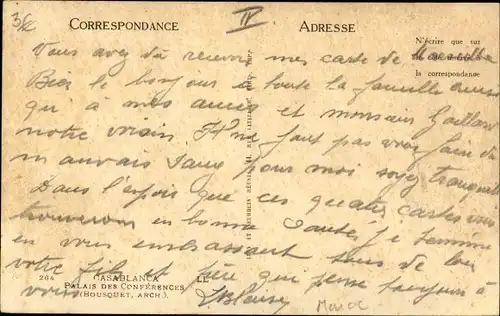 3/II
IV
CORRESPONDANCE
ADRESSE
N'écrire que sur
la correspondance
Vous avez dû recevoir mes carte de Marseille
Bien le bonjour à toute la famille ainsi
qu'à mes amis et monsieur Gaillard
notre voisin Il ne faut pas vous faire de
mauvais sang pour moi soyez tranquille
Dans l'espoir que ces quatre cartes vous
trouverons en bonne santé, je termine
en vous embrassant tous de
votre fils et frère qui pense toujours à
vous
264 CASABLANCA LL
PALAIS DES CONFÉRENCES
(BOUSQUET, ARCH.)
Maroc